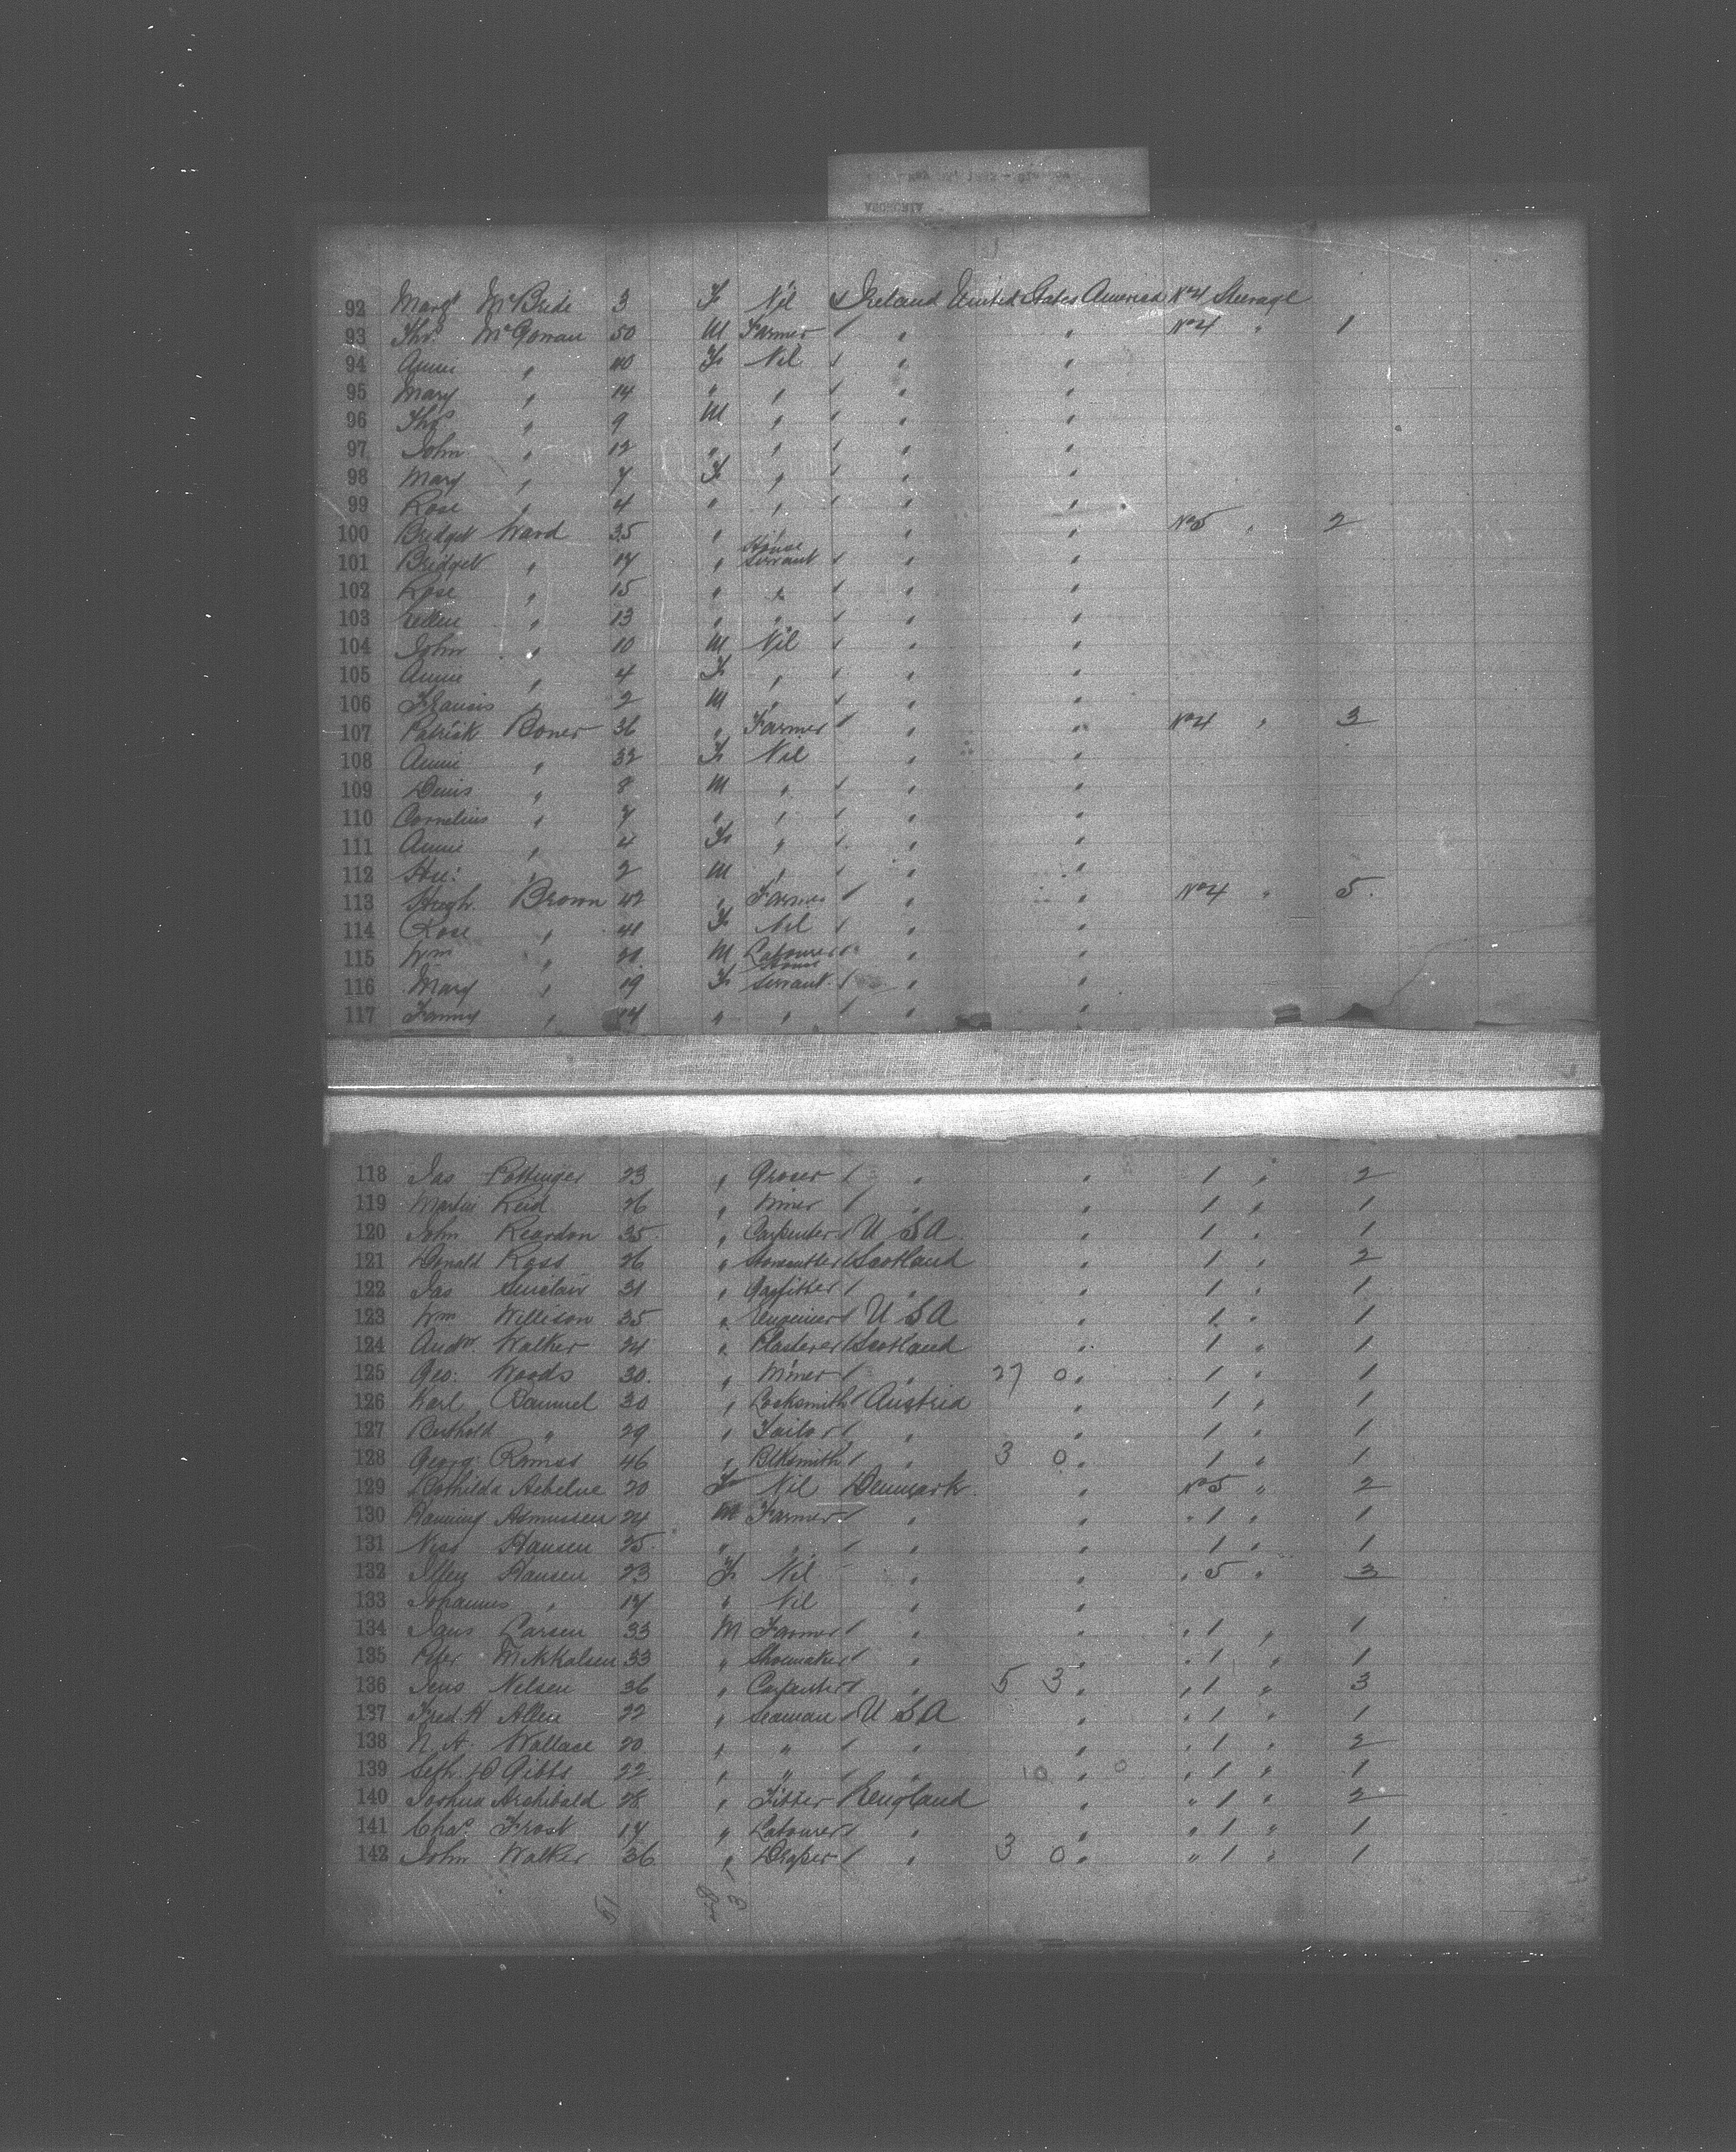 92 Margt McBride 3 F Nil Ireland United States America No 4 Steerage
93 Thos McGowan 50 M Farmer / " " No 4 " 1
94 Annie " 40 F Nil / " "
95 Mary " 14 " " / " "
96 Thos " 9 M " / " "
97 John " 12 " " / " "
98 Mary " 7 F " / " "
99 Rose " 4 " " / " "
100 Bridget Ward 35 " " " " No 5 " 2
101 Bridget " 17 " House Servant / " "
102 Rose " 15 " " / " "
103 Ellen " 13 " " / " "
104 John " 10 M Nil / " "
105 Annie " 4 F " / " "
106 Francis " 2 M " / " "
107 Patrick Boner 36 " Farmer / " " No 4 " 3
108 Annie " 32 F Nil " "
109 Denis " 8 M " / " "
110 Cornelius " 7 " " / " "
111 Annie " 4 F " / " "
112 " 2 M " / " "
113 Hugh Brown 42 " Farmer / " " No 4 " 5.
114 Rose " 41 F Nil " "
115 Wm " M Labourer / " "
116 Mary " 19 F House Servant / " "
117 Fanny " 17 " " / " "
118 Jas Pottinger 23 " Grocer / " " 1 " 2
119 Martin Reid 26 " Miner / " " 1 " 1
120 John Reardon 35 " Carpenter / U S A " 1 " 1
121 Donald Ross 26 " Stonecutter / Scotland " 1 " 2
122 Jas Sinclair 31 " Gasfitter / " " 1 " 1
123 Wm Willison 35 " Engineer / U S A " 1 " 1
124 Andw. Walker 24 " Plasterer / Scotland " 1 " 1
125 Geo: Woods 30 " Miner / " 27 0 " 1 " 1
126 Karl Rammel 30 " Locksmith / Austria " 1 " 1
127 Berthold " 29 " Tailor / " " 1 " 1
128 Georg 46 " Blksmith / " 3 0 " 1 " 1
129 Bothilda 20 F Nil Denmark " No 5 " 2
130 Asmussen 24 M Farmer / " " " 1 " 1
131 Niss Hansen 25 " " / " " 1 " 1
132 Hansen 23 F Nil " " " 5 " 3
133 " 17 " Nil " "
134 Larsen 33 M Farmer / " " " 1 " 1
135 Peter Mikkalsen 33 " Shoemaker / " " " 1 " 1
136 Jens Nelsen 36 " Carpenter / " 5 3 " " 1 " 3
137 Fred H Allen 22 " Seaman / U S A " " 1 " 1
138 N. A. Wallace 20 " " / " " " 1 " 2
139 Seth. D Gibbs 22 " " / " 10 " 0 " 1 " 1
140 Joshua Archibald 28 " Fitter England " " 1 " 2
141 Chas. Frost 17 " Labourer / " " " 1 " 1
142 John Walker 36 " Draper / " 3 0 " " 1 " 1